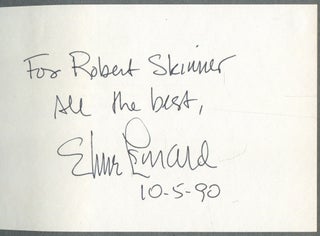 For Robert Skinner
All the best,
Elmore Leonard
10-5-90